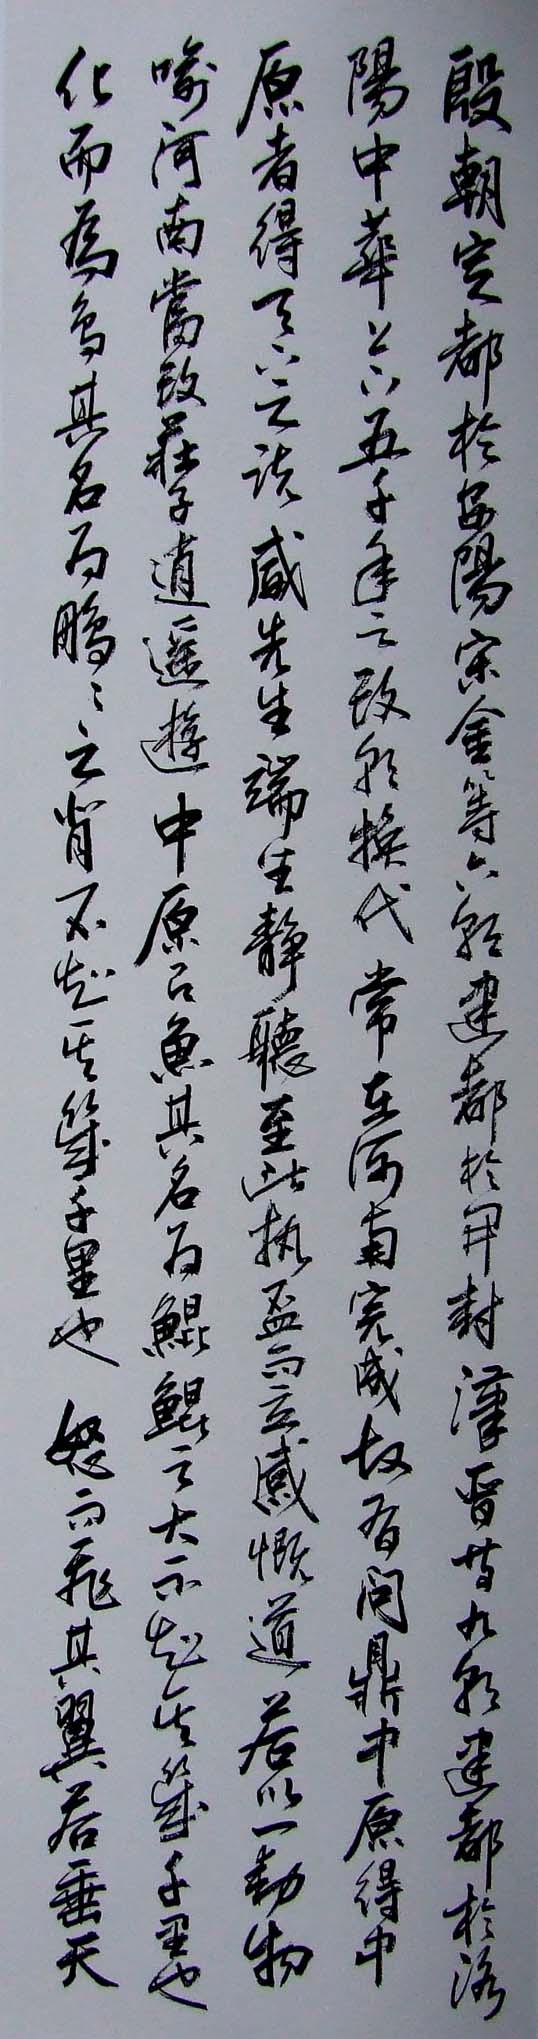 殷朝定都於安陽宋金等六朝建都於開封漢晉等九朝建都於洛
陽中華上下五千年之改朝換代常在河南完成故有問鼎中原得中
原者得天下之說戚先生端坐靜聽至此執盃而立感慨道若以一動物
喻河南當改莊子逍遥遊中原有魚其名为鯤鯤之大不知其幾千里也
化而為鳥其名为鵬〻之背不知其幾千里也怒而飛其翼若垂天